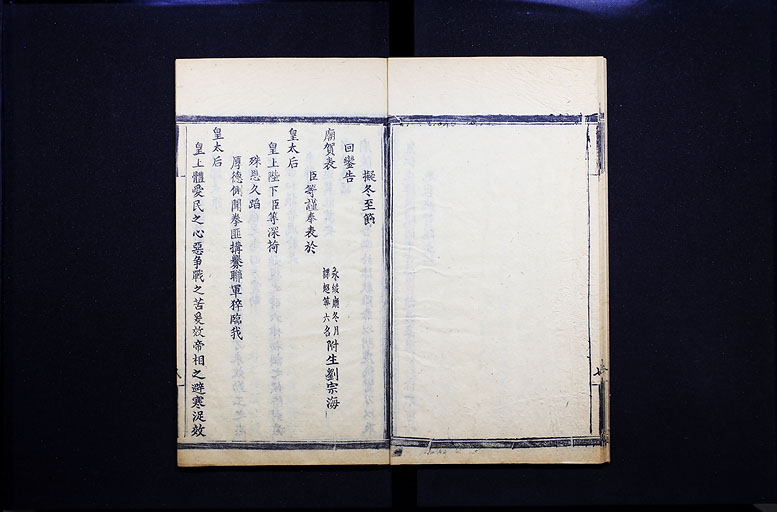 擬冬至節
回鑾告
廟賀表
永綏廳冬月
課超等六名
附生劉宗海
臣等謹奉表於
皇太后
皇上陛下臣等深荷
殊恩久蹈
厚德側聞拳匪搆釁聯軍猝臨我
皇太后
皇上體愛民之心惡争戰之苦爰效帝相之避寒浞效